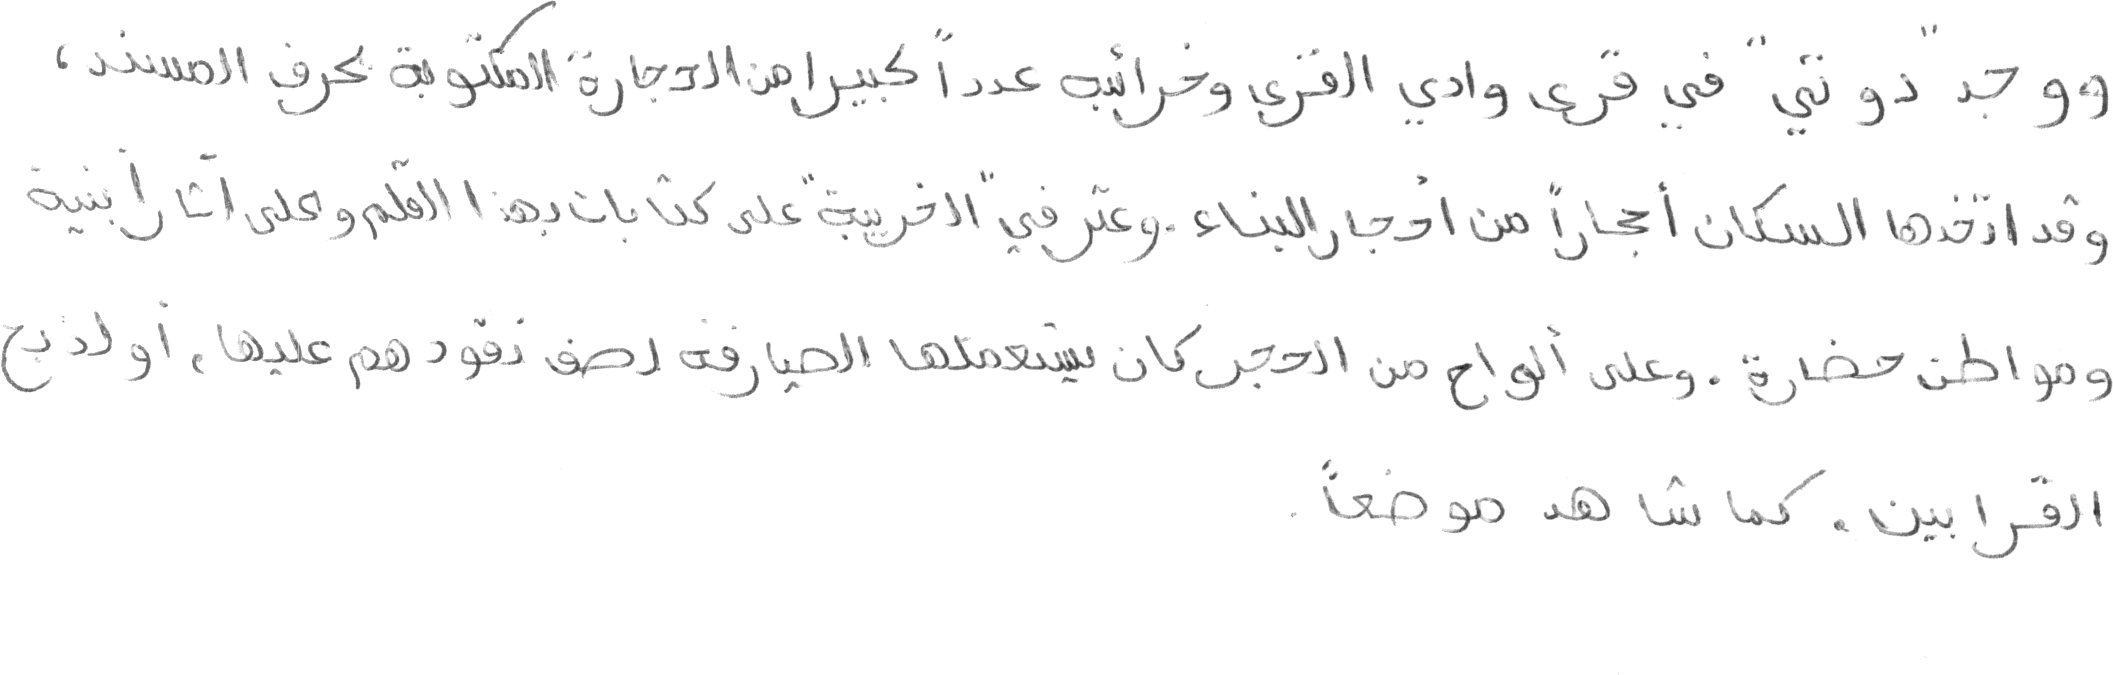 ووجد "دوتي" في قرى وادي القرى وخرائبه عدداً كبيرا من الحجارة المكتوبة بحرف المسند،
وقد اتخذها السكان أحجاراً من أحجار البناء. وعثر في "الخريبة" على كتابات بهذا القلم وعلى آثار أبنية
ومواطن حضارة. وعلى ألواح من الحجر كان يستعملها الصيارفة لصف نقودهم عليها، أو لذبح
القرابين. كما شاهد موضعاً.